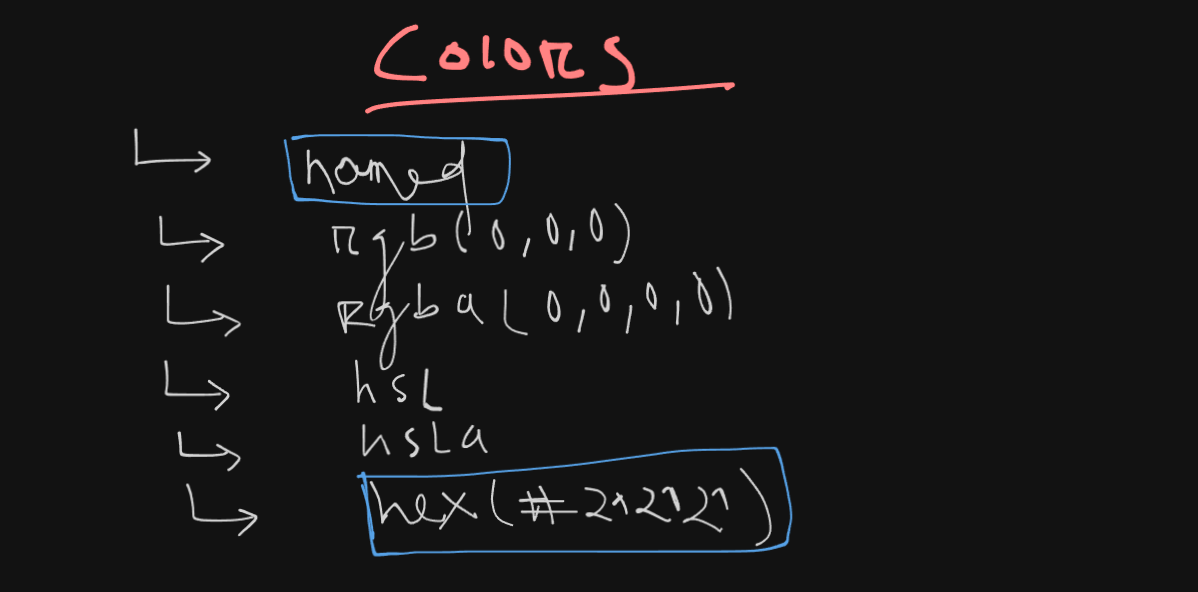 Colors
named
rgb(0,0,0)
rgba(0,0,0,0)
hsl
hsla
hex(#212121)